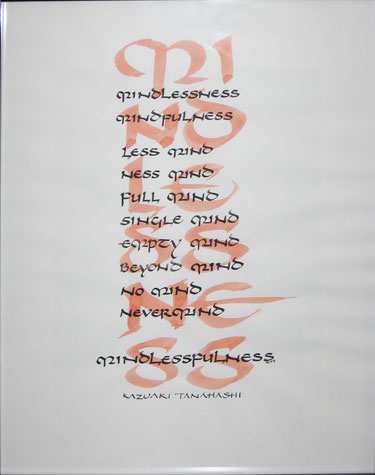 MINDLESSNESS
MINDLESSNESS
MINDFULNESS
LESS MIND
NESS MIND
FULL MIND
SINGLE MIND
EMPTY MIND
BEYOND MIND
NO MIND
NEVERMIND
MINDLESSFULNESS
KAZUAKI TANAHASHI